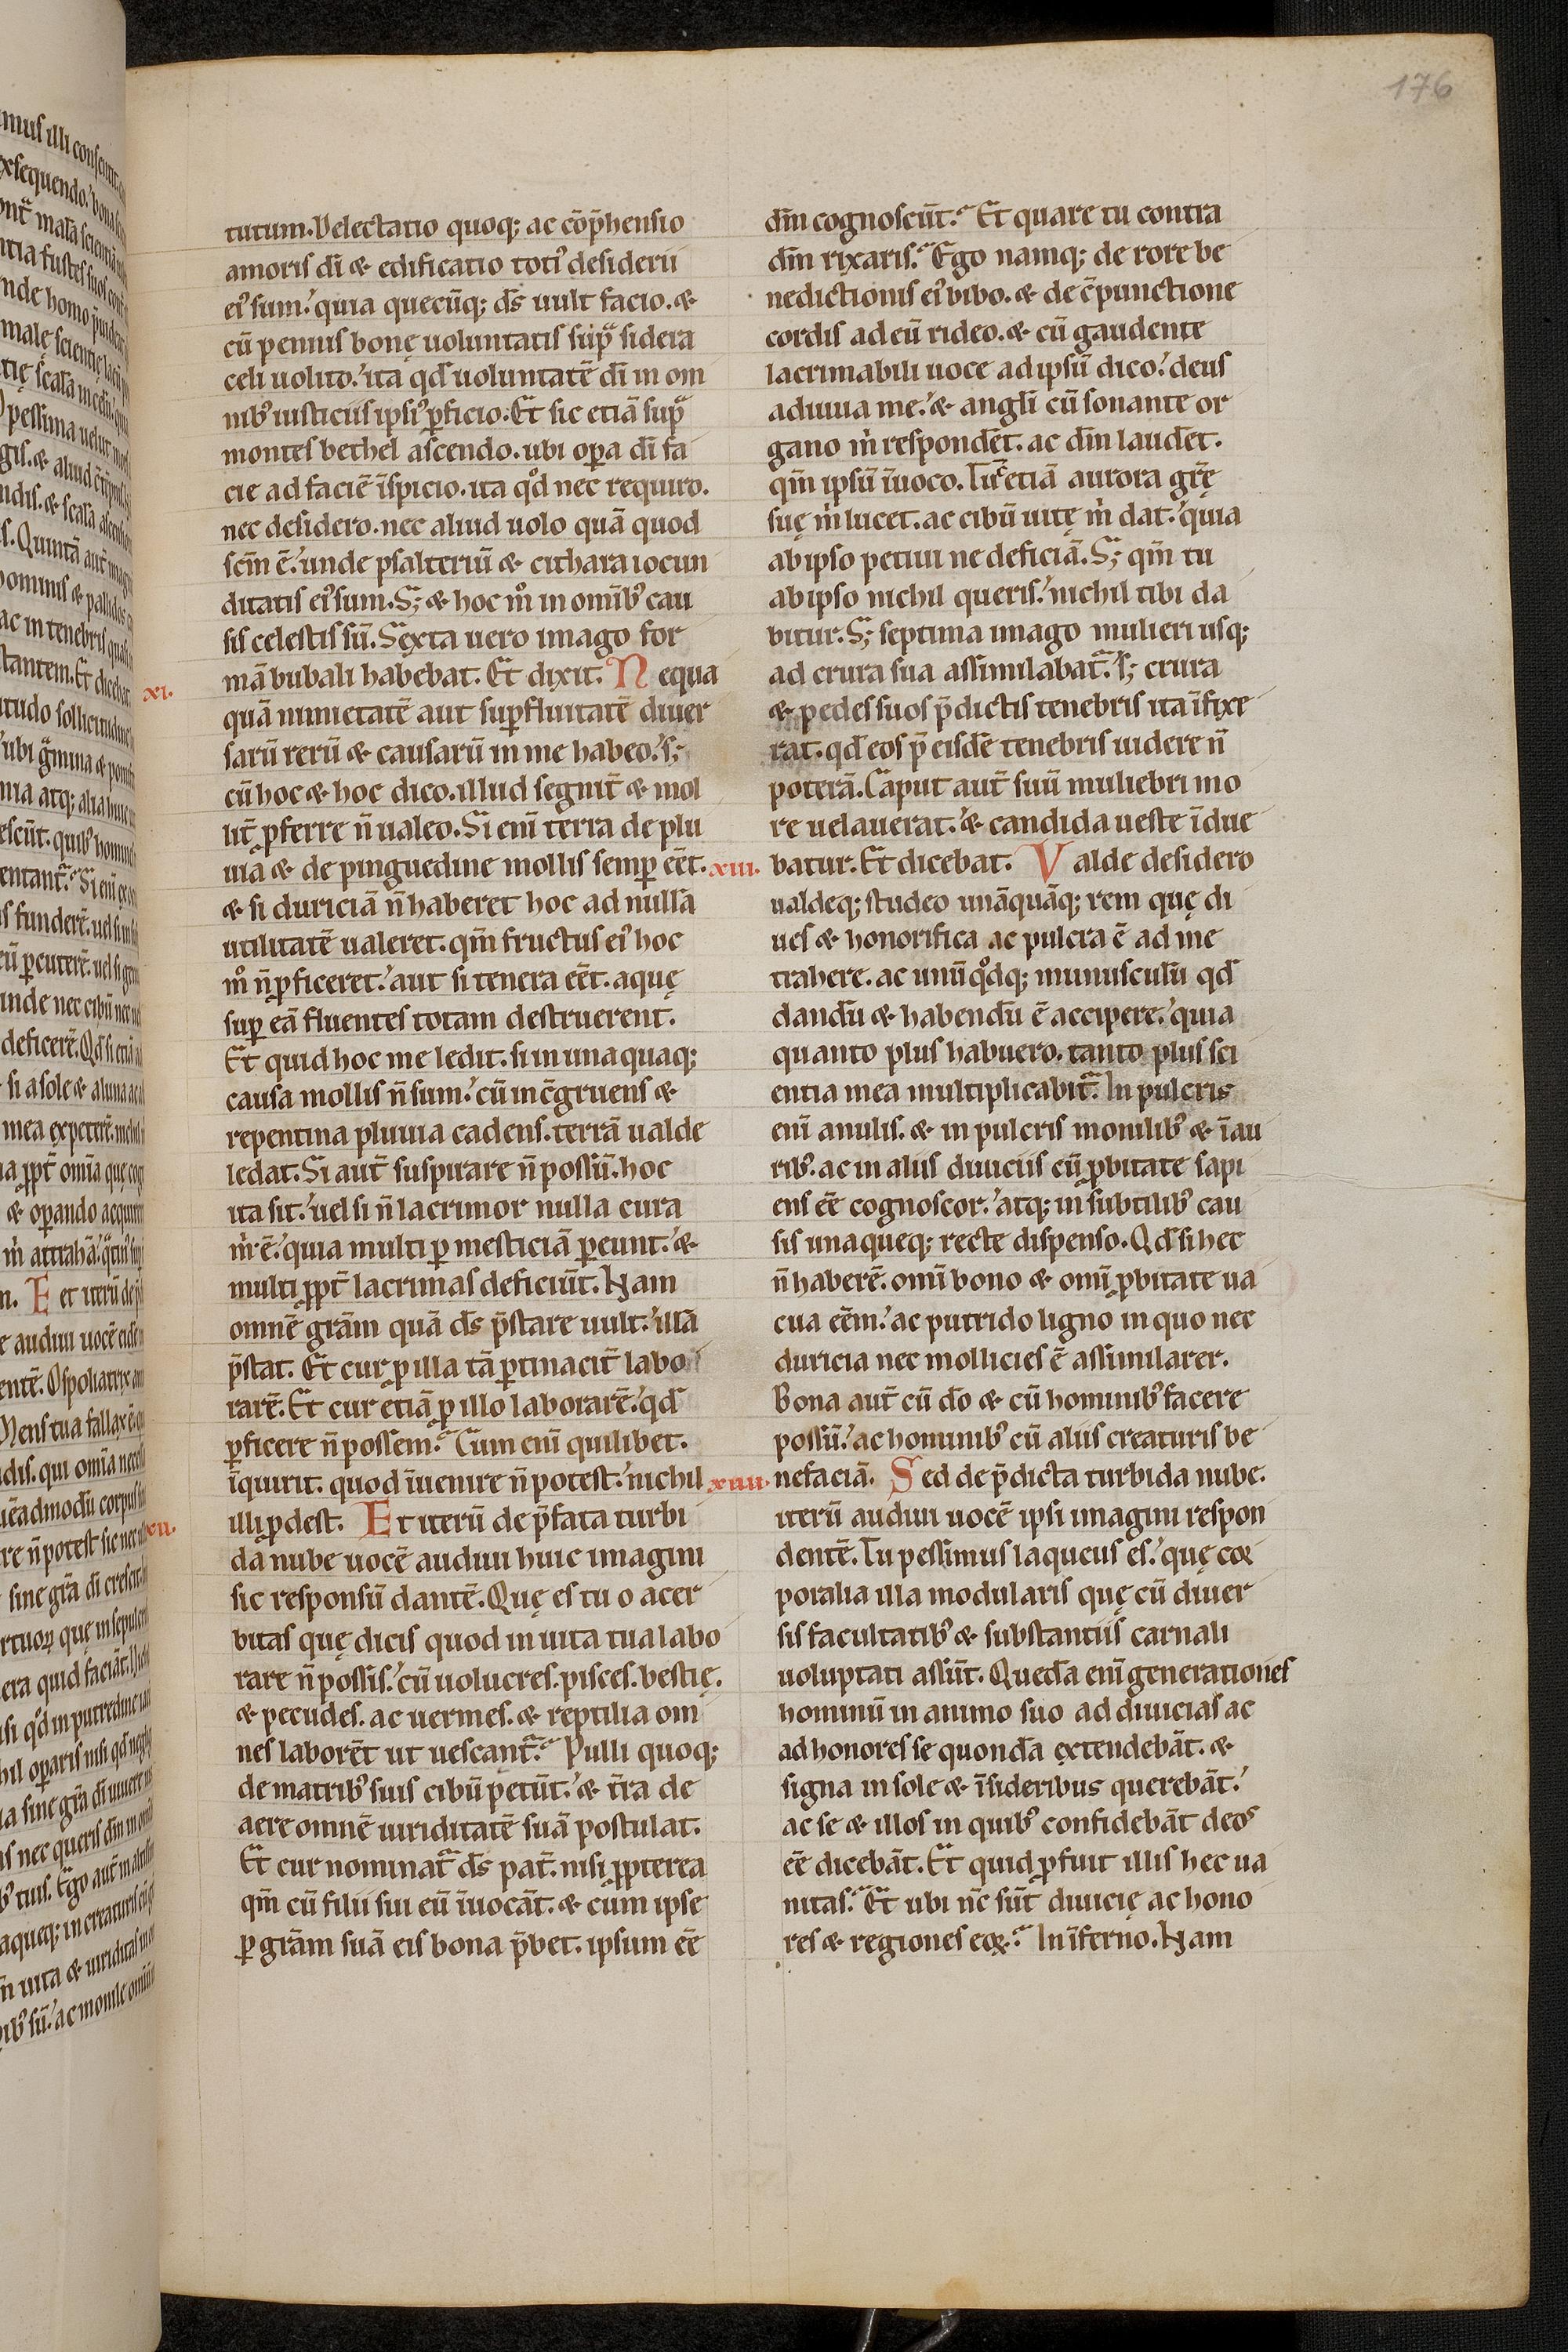 176
tutum. Delectatio quoq; ac cōp̄hensio
amoris dī & edificatio toti᾽ desiderii
ei᾽ sum.᾽ quia quecūq; d̄s uult facio. &
cū pennis bonę uoluntatis sup̄ sidera
celi uolito.᾽ ita qđ uoluntatē dī in om
nib᾽ iusticiis ipsi᾽ ꝑficio. Et sic etiā sup̄
montes bethel ascendo. ubi oꝑa dī fa
cie ad faciē īspicio. ita qͦd nec requiro.
nec desidero. nec aliud uolo quā quod
scm̄ ē.᾽ unde psalteriū & cithara iocun
ditatis ei᾽ sum. S; & hoc mͦ in omib᾽ cau
sis celestis sū. Sexta uero imago for
xi.
mā bubali habebat. Et dixit. Nequa
quā nimietatē aut suꝑfluitatē diuer
sarū rerū & causarū in me habeo.᾽ s;
cū hoc & hoc dico. illud segnit̄ & mol
lit̄ ꝓferre n̄ ualeo. Si enī terra de plu
uia & de pinguedine mollis semꝑ eēt.
& si duriciā n̄ haberet hoc ad nullā
utilitatē ualeret. qm̄ fructus ei᾽ hoc
mͦ n̄ ꝓficeret.᾽ aut si tenera eēt. aquę
suꝑ eā fluentes totam destruerent.
Et quid hoc me ledit. si in unaquaq;
causa mollis n̄ sum.᾽ cū in c̄gruens &
repentina pluuia cadens. terrā ualde
ledat. Si aut̄ suspirare n̄ possū. hoc
ita sit.᾽ uel si n̄ lacrimor nulla cura
m̍ ē.᾽ quia multi ꝑ mesticiā ꝑeunt.᾽ &
multi ꝓpt̄ lacrimas deficiūt. Nam
omnē grām quā d̄s p̄stare uult.᾽ illā
p̄stat. Et cur ꝓ illa tā ꝑtinacit̄ labo
rarē. Et cur etiā ꝓ illo laborarē.᾽ qđ
ꝑficere n̄ possem. Cum enī quilibet.
īquirit. quod īuenire n̄ potest.᾽ nichil
xii.
illi ꝓdest. Et iterū de p̄fata turbi
da nube uocē audiui huic imagini
sic responsū dantē. Quę es tu o acer
bitas quę dicis quod in uita tua labo
rare n̄ possis.᾽ cū uolucres. pisces. bestię.
& pecudes. ac uermes. & reptilia om
nes laborēt ut uescant̄. Pulli quoq;
de matrib᾽ suis cibū petūt.᾽ & t̄ra de
aere omnē uiriditatē suā postulat.
Et cur nominat̄ d̄s pat̄. nisi ꝓpterea
qm̄ cū filii sui eū īuocāt. & cum ipse
ꝑ grām suā eis bona p̄bet. ipsum eē
dm̄ cognoscūt. Et quare tu contra
dm̄ rixaris. Ego namq; de rore be
nedictionis ei᾽ bibo. & de c̄punctione
cordis ad eū rideo. & cū gaudente
lacrimabili uoce ad ipsū dico.᾽ deus
adiuua me.᾽ & angli cū sonante or
gano m̍ respondēt. ac dm̄ laudēt.
qm̄ ipsū īuoco. Tūc etiā aurora grę̄
suę m̍ lucet. ac cibū uitę m̍ dat.᾽ quia
ab ipso petiui ne deficiā. S; qm̄ tu
ab ipso nichil queris.᾽ nichil tibi da
bitur. S; septima imago mulieri usq;
ad crura sua assimilabat̄. s; crura
& pedes suos p̄dictis tenebris ita īfixe
rat. qđ eos p̄ eisdē tenebris uidere n̄
poterā. Caput aut̄ suū muliebri mo
re uelauerat.᾽ & candida ueste īdue
xiii.
batur. Et dicebat. Valde desidero
ualdeq; studeo unāquāq; rem quę di
ues & honorifica ac pulcra ē ad me
trahere. ac unū qͦdq; munusculū qđ
dandū & habendū ē accipere.᾽ quia
quanto plus habuero. tanto plus sci
entia mea multiplicabit̄. In pulcris
enī anulis. & in pulcris monilib᾽ & īau
rib᾽. ac in aliis diuiciis cū ꝓbitate sapi
ens eē cognoscor.᾽ atq; in subtilib᾽ cau
sis unaqueq; recte dispenso. Qđ si hec
n̄ haberē. omī bono & omī ꝓbitate ua
cua eēm.᾽ ac putrido ligno in quo nec
duricia nec mollicies ē assimilarer.
Bona aut̄ cū do & cū hominib᾽ facere
possū.᾽ ac hominib᾽ cū aliis creaturis be
xiiii.
nefaciā. Sed de p̄dicta turbida nube.
iterū audiui uocē ipsi imagini respon
dentē. Tu pessimus laqueus es.᾽ quę cor
poralia illa modularis quę cū diuer
sis facultatib᾽ & substantiis carnali
uoluptati assūt. Quedā enī generationes
hominū in animo suo ad diuicias ac
ad honores se quondā extendebāt. &
signa in sole & īsideribus querebāt.᾽
ac se & illos in quib᾽ confidebāt deos
eē dicebāt. Et quid ꝓfuit illis hec ua
nitas. Et ubi nc̄ sūt diuicię ac hono
res & regiones eoꝝ. In īferno. Nam